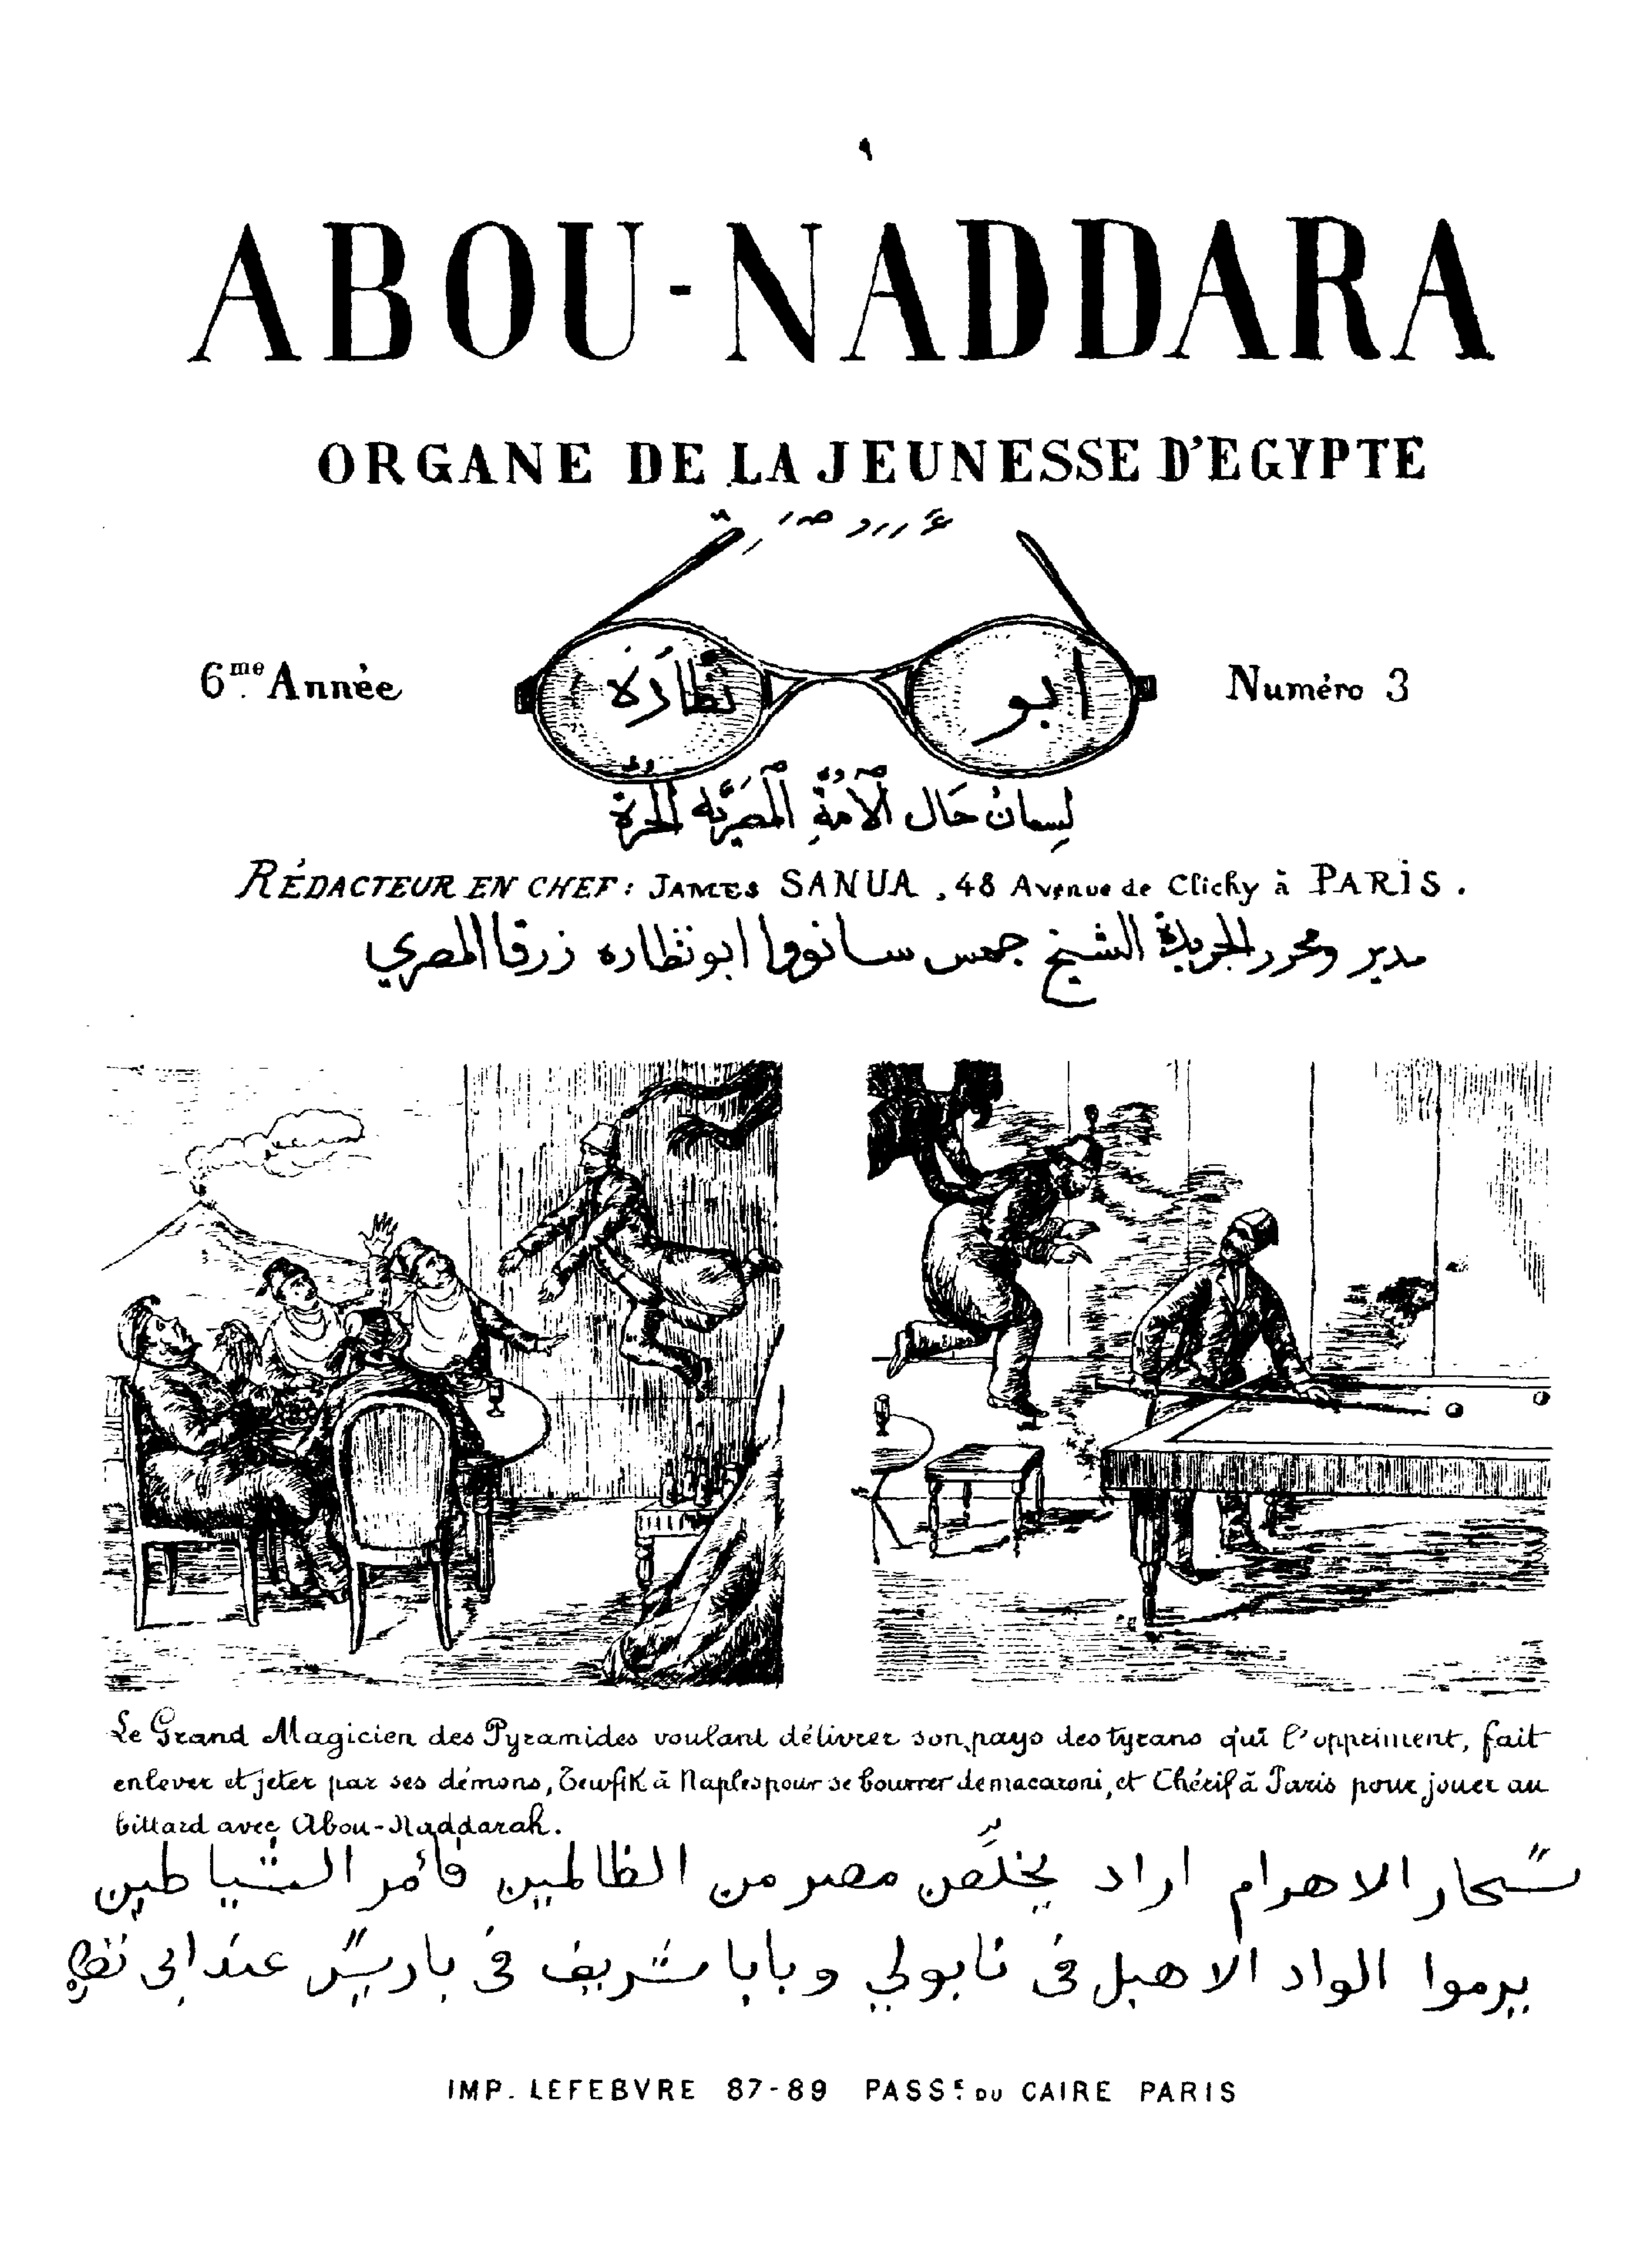 ABOU-NADDARA
ORGANE DE LA JEUNESSE D'EGYPTE
6me Année
ابو نظّارَه
Numéro 3
لِسانُ حَال الأُمَّةِ المَصرِيَّه الحُرَّة
RÉDACTEUR EN CHEF: JAMES SANUA, 48 Avenue de Clichy à PARIS.
مدير ومحرر الجريدة الشيخ جمس سانووا ابونظاره زرقا المصري
Le Grand Magicien des Pyramides voulant délivrer son pays des tyrans qui l'oppriment, fait
enlever et jeter par ses démons, Tewfik à Naples pour se bourrer de macaroni, et Chérif à Paris pour jouer au
billard avec Abou-Naddarah.
سَحار الاهرام اراد يخلّص مصر من الظالمين فأمر الشياطين
يرموا الواد الاهبل فى نابولي وبابا شريف فى باريس عند ابى
IMP. LEFEBVRE 87-89 PASSE DU CAIRE PARIS